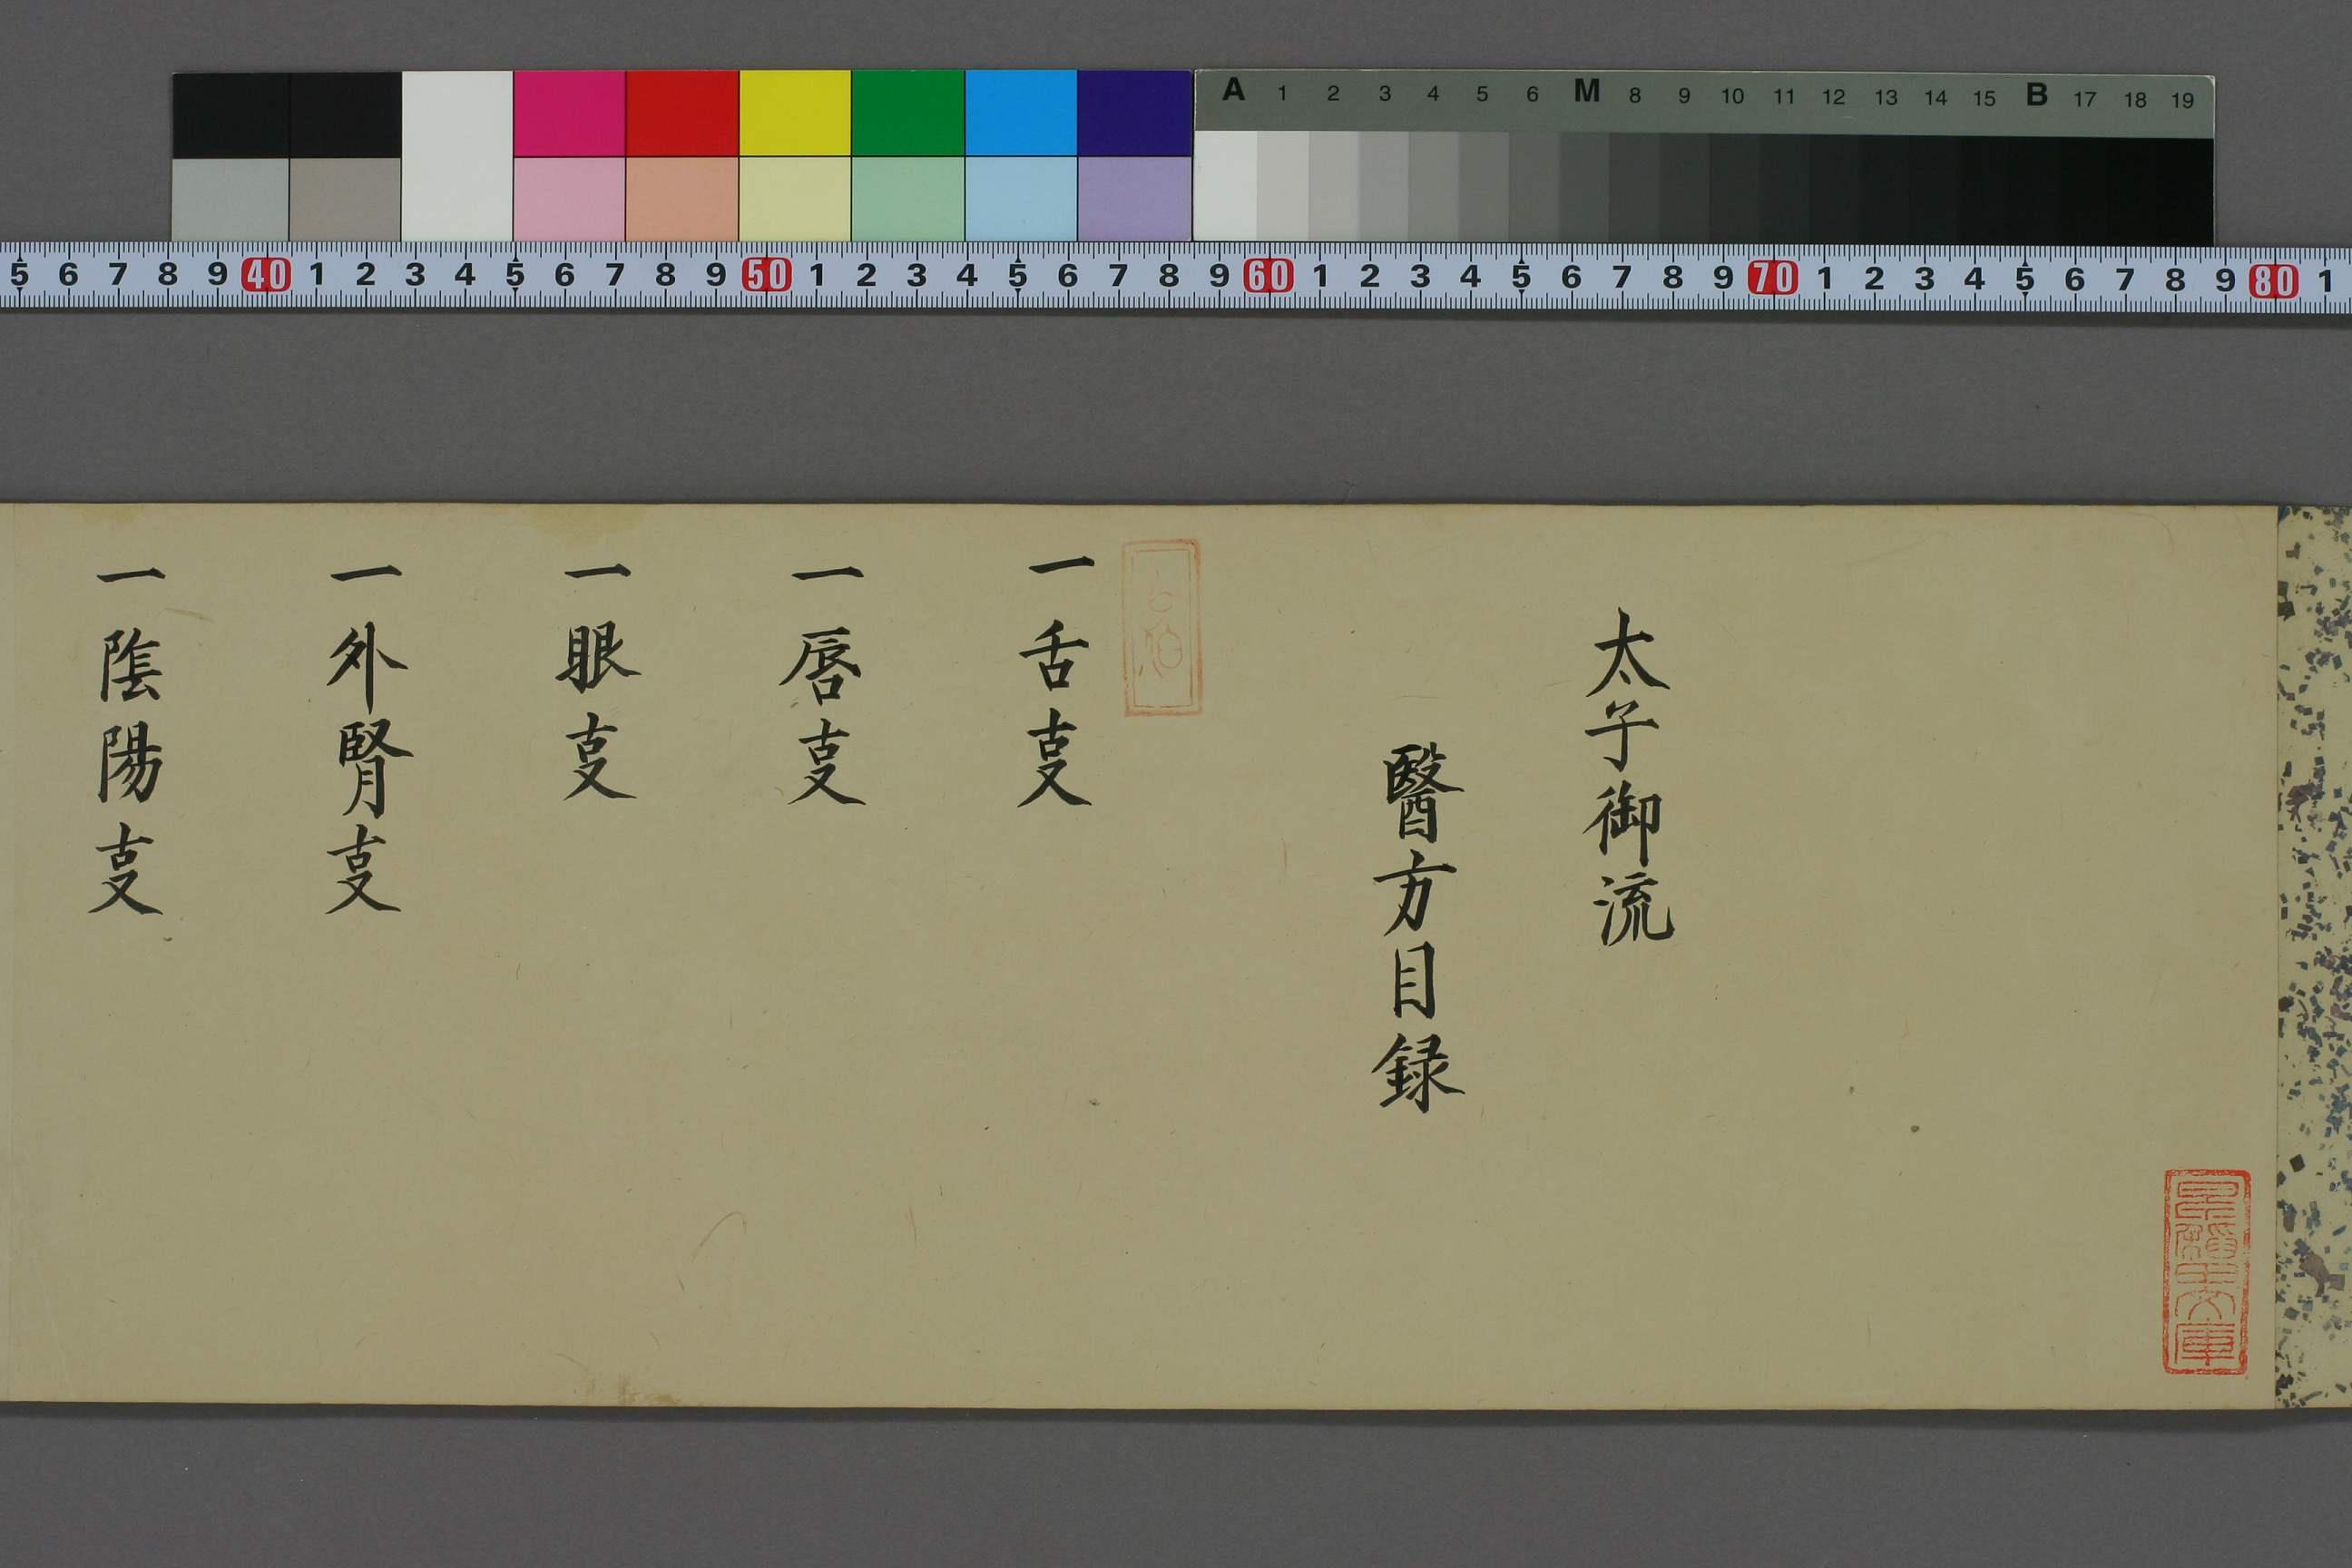 A 1 2 3 4 5 6 M 8 9 10 11 12 13 14 15 B 17 18 19
5 6 7 8 9 40 1 2 3 4 5 6 7 8 9 50 1 2 3 4 5 6 7 8 9 60 1 2 3 4 5 6 7 8 9 70 1 2 3 4 5 6 7 8 9 80 1
太子御流
醫方目録
一舌㕝
一唇㕝
一眼㕝
一外腎㕝
一陰陽㕝
文庫